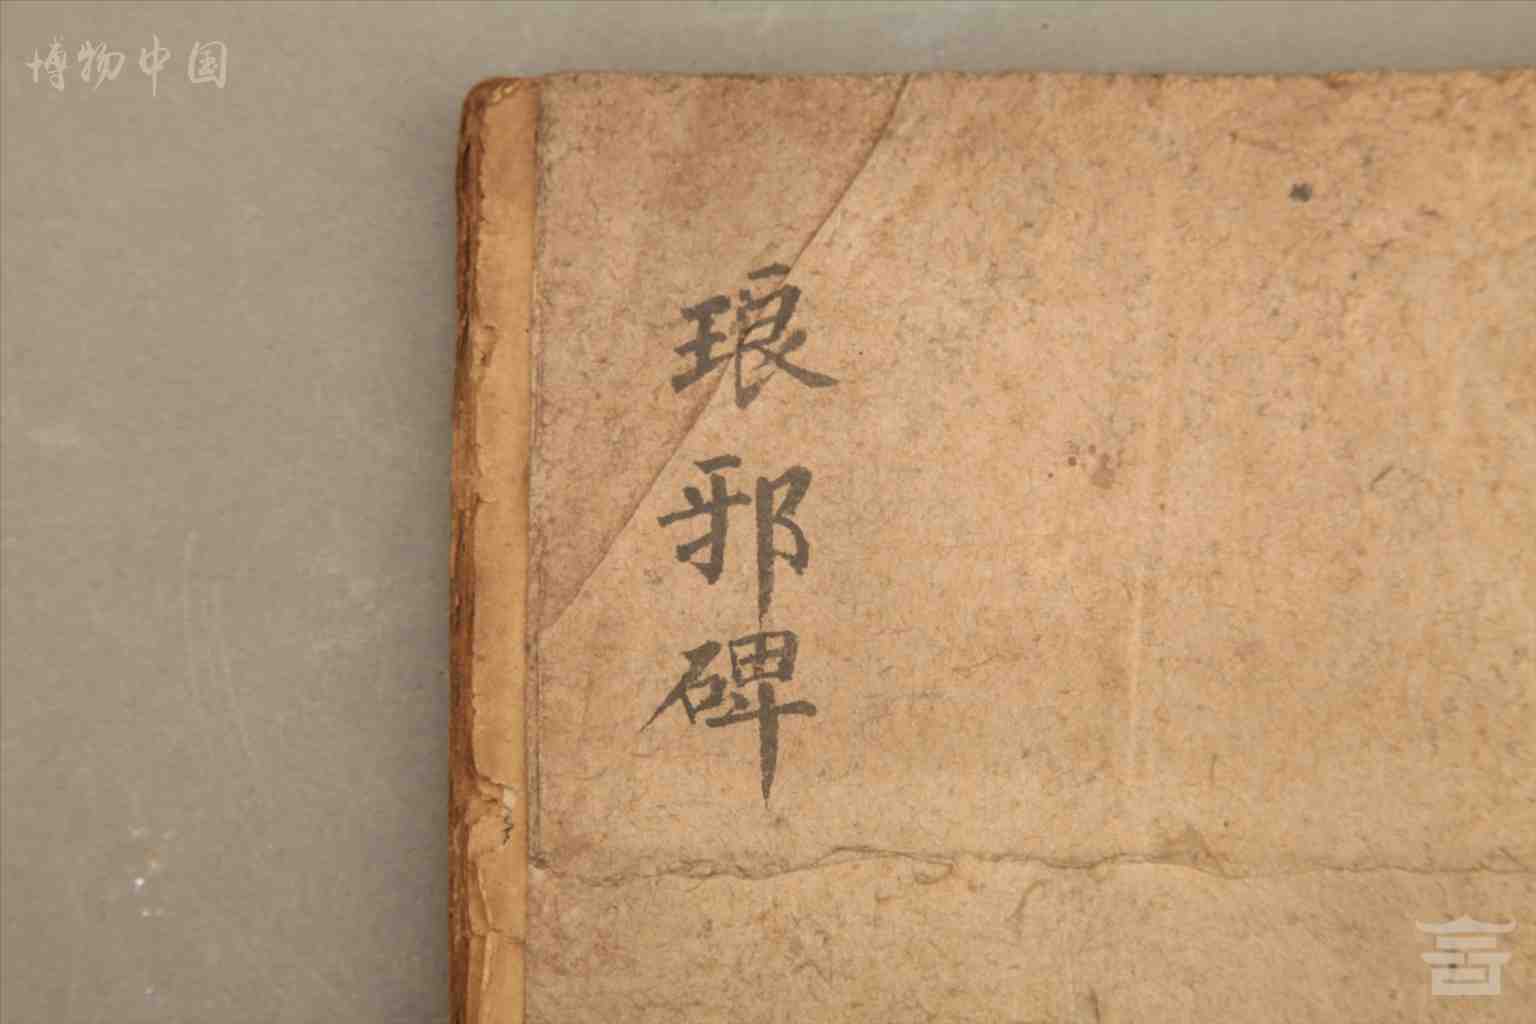 博物中国
琅邪碑